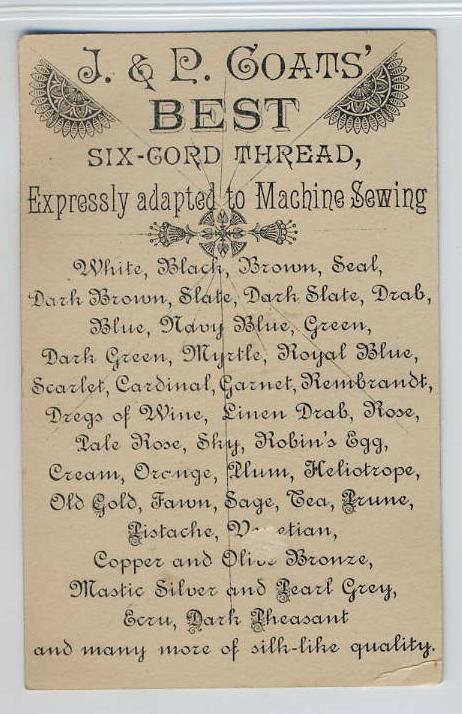 J. & P. COATS'
BEST
SIX-CORD THREAD,
Expressly adapted to Machine Sewing
White, Black, Brown, Seal,
Dark Brown, Slate, Dark Slate, Drab,
Blue, Navy Blue, Green,
Dark Green, Myrtle, Royal Blue,
Scarlet, Cardinal, Garnet, Rembrandt,
Dregs of Wine, Linen Drab, Rose,
Pale Rose, Sky, Robin's Egg,
Cream, Orange, Plum, Heliotrope,
Old Gold, Fawn, Sage, Tea, Prune,
Pistache, Venetian,
Copper and Olive Bronze,
Mastic Silver and Pearl Grey,
Ecru, Dark Pheasant
and many more of silk-like quality.